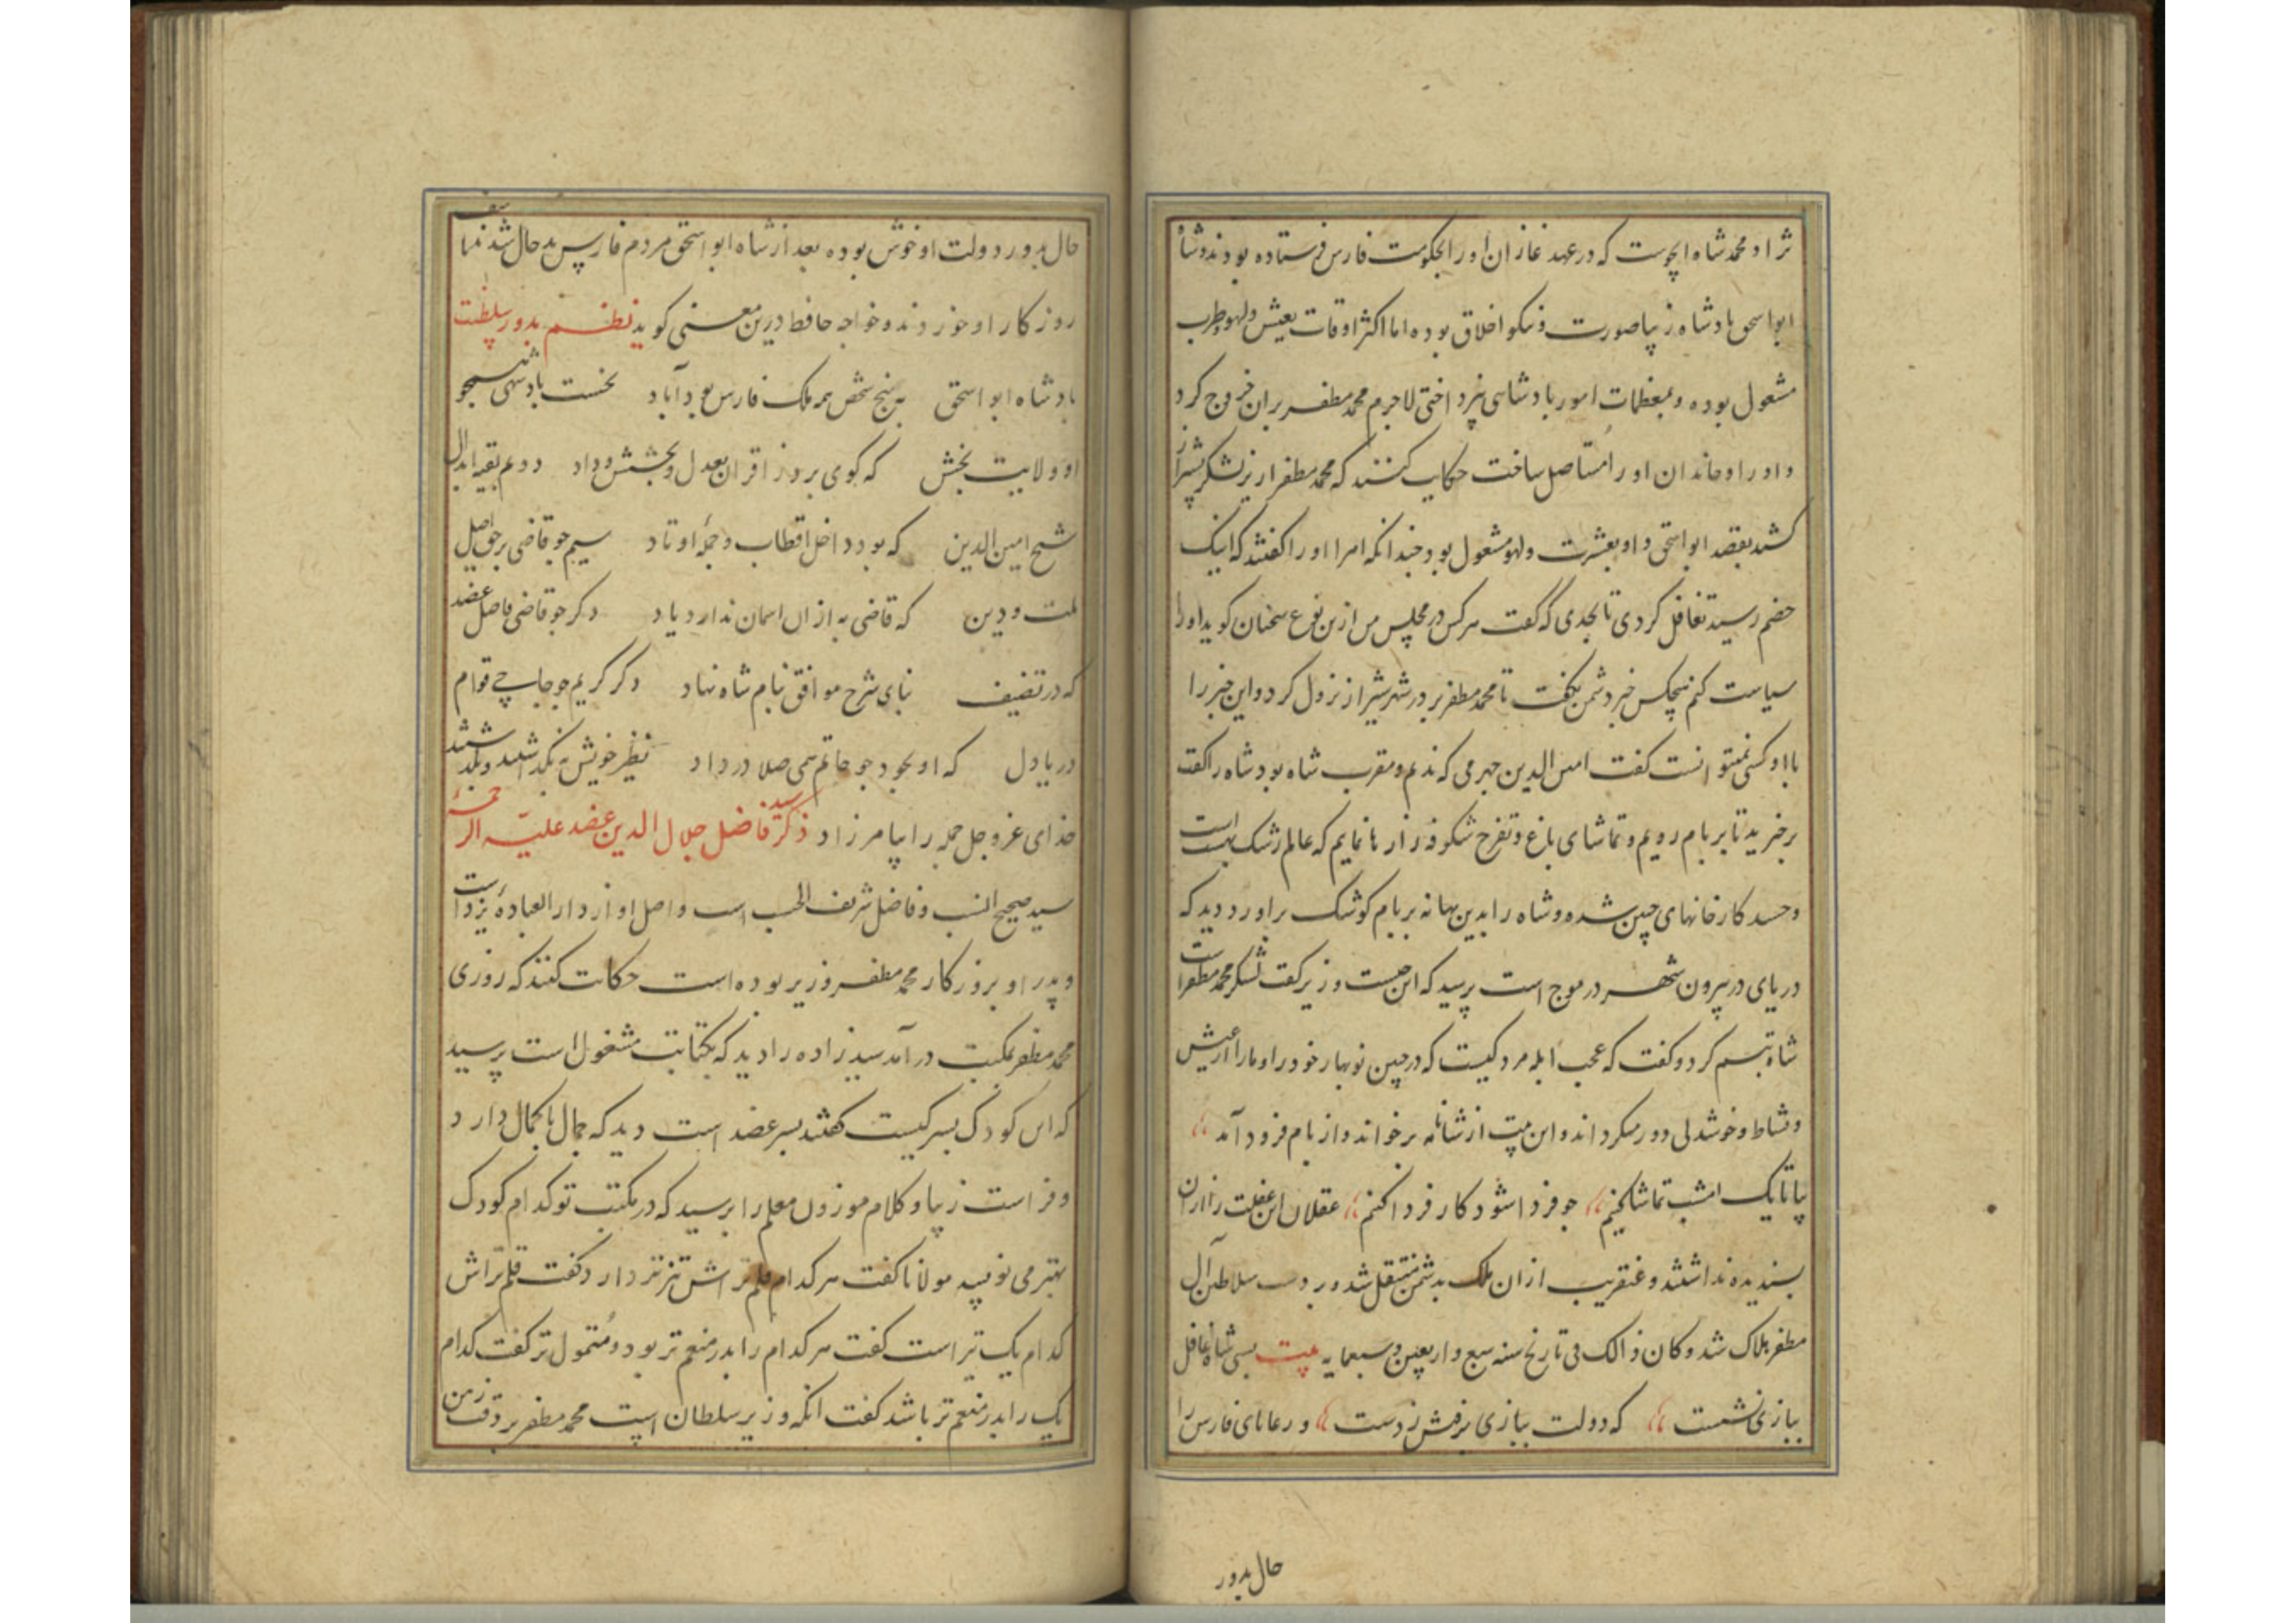 نژاد محمد شاه اینجوست که در عهد غازان او را بحکومت فارس فرستاده بودند و شاه
ابواسحق بادشاه زیبا صورت و نیکو اخلاق بوده اما اکثر اوقات بعیش و لهو و طرب
مشغول بوده و بمعظمات امور بادشاهی نپرداختی لاجرم محمد مظفر بران خروج کرد
و او را و خاندان او را مستاصل ساخت حکایت کنند که محمد مظفر از یزد لشکر بشیراز
کشد بقصد ابواسحق و او بعشرت و لهو مشغول بود چندانکه امرا او را گفتند که اینک
خصم رسید تغافل کردی تا بحدی که گفت هرکس در مجلس من ازین نوع سخنان کوید او را
سیاست کنم هیچکس خبر دشمن نگفت تا محمد مظفر بر در شهر شیراز نزول کرد و این خبر را
با او کسی نمیتوانست کفت امین الدین جهرمی که ندیم و مقرب شاه بود شاه را کفت
برخیزید تا بر بام رویم و تماشای باغ و تفرج شکوفه زارها نمایم که عالم رشک بهشت است
و حسد کارخانهای چین شده و شاه را بدین بهانه بر بام کوشک براورد دید که
دریای در بیرون شهر در موج است پرسید که این چیست وزیر کفت لشکر محمد مظفر است
شاه تبسم کرد و کفت که عجب ابله مردکیست که در چنین نوبهار خود را و ما را از عیش
و نشاط و خوشدلی دور میکرداند و این بیت از شاهنامه برخواند و از بام فرود آمد
بیا تا یک امشب تماشا کنیم چو فردا شود کار فردا کنیم عقلان این غفلت را ازان
پسندیده نداشتند و عنقریب ازان ملک بدشمن منتقل شد و بر دست سلاطین آل
مظفر هلاک شد و کان ذالک فی تاریخ سنه سبع و اربعین و سبعمایه بیت بسی شاه غافل
ببازی نشست که دولت ببازی برفتش ز دست و رعایای فارس را
حال بدور
حال بدور دولت او خوش بوده بعد از شاه ابواسحق مردم فارس بد حال شدند تاسف
روزکار او خوردند و خواجه حافظ درین معنی کوید نظم بدور سلطنت
بادشاه ابواسحق به پنج شخص همه ملک فارس بود آباد نخست بادشهی همچو
او ولایت بخش که کوی برد ز اقران بعدل و بخشش و داد دوم بقیه ابدال
شیخ امین الدین که بود داخل اقطاب و جمله اوتاد سیم چو قاضی بر حق اصیل
ملت و دین که قاضی به ازان اسمان ندارد یاد دکر چو قاضی فاضل عضد
که در تصنیف بنای شرح مواقف بنام شاه نهاد دکر کریم چو حاجی قوام
دریا دل که او بجود چو حاتم همی صلا درداد نظیر خویش نه بکذاشتند و بکذشتند
خدای عز و جل جمله را بیامرزاد ذکر سید فاضل جلال الدین عضد علیه الرحمه
سید صحیح النسب و فاضل شریف الحسب است و اصل او از دار العباده یزد است
و پدر او بروزکار محمد مظفر وزیر بوده است حکایت کنند که روزی
محمد مظفر بمکتب درآمد سید زاده را دید که بکتابت مشغول است پرسید
که این کودک پسر کیست کفتند پسر عضد است دید که جمال با کمال دارد
و فراست زیبا و کلام موزون معلم را پرسید که در مکتب تو کدام کودک
بهتر می نویسد مولانا کفت هر کدام قلم تراش تیز تر دارد کفت قلم تراش
کدام یک تیز است کفت هر کدام را پدر منعم تر بود و متمول تر کفت کدام
یک را پدر منعم تر باشد کفت آنکه وزیر سلطان است محمد مظفر بر دقت ذهن